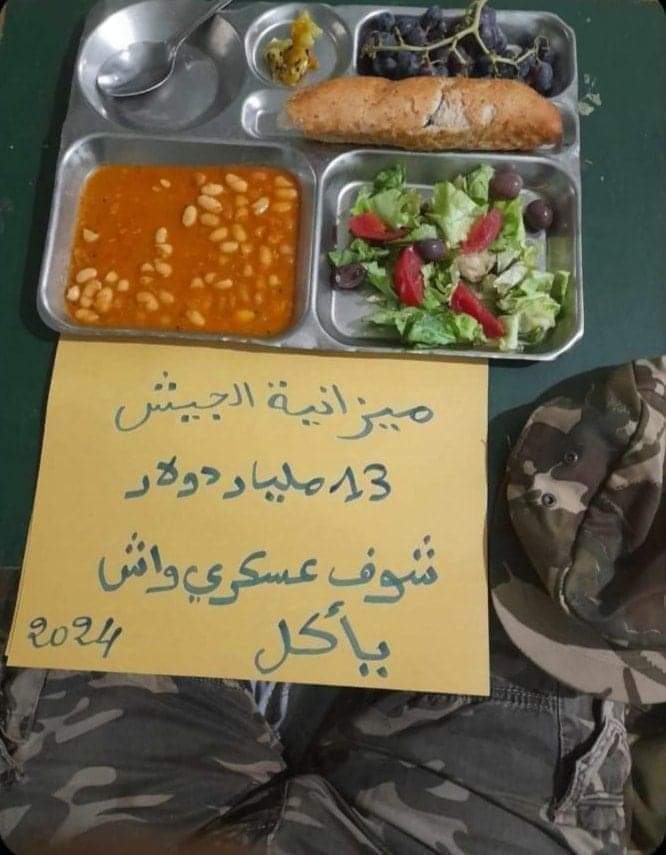 ميزانية الجيش
13 مليار دولار
شوف عسكري واش
يأكل
2024